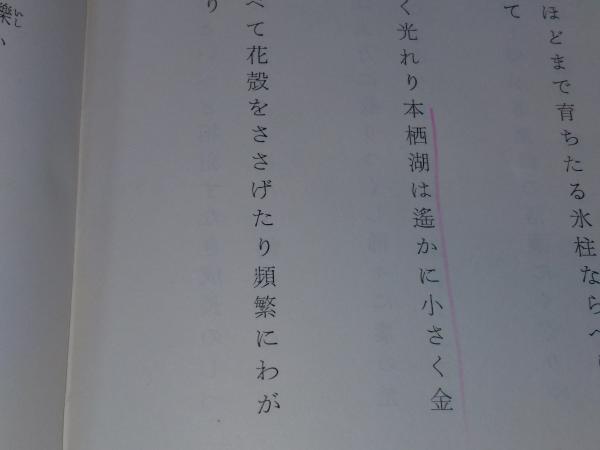 ほどまで育ちたる氷柱ならべ
て
く光れり本栖湖は遙かに小さく金
べて花殻をささげたり頻繁にわが
り
礫いし